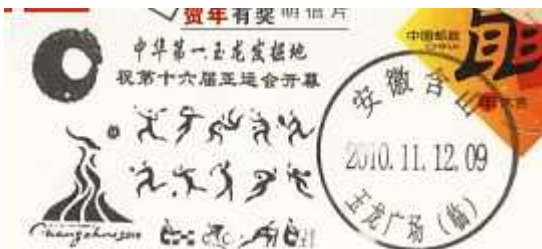 贺年有奖明信片
中国邮政
CHINA
中华第一玉龙发掘地
祝第十六届亚运会开幕
安徽含山
2010.11.12.09
玉龙广场（临）
Guangzhou 2010